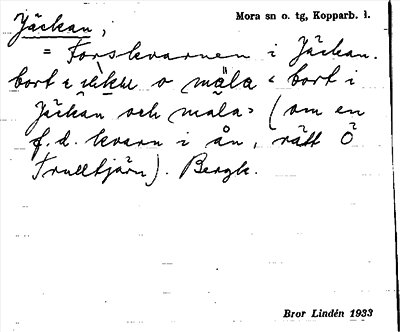 Jäckan,
Mora sn o. tg, Kopparb. l.
= Forskvarnen i Jäckan.
bort i o mäla "bort i
Jäckan och mala" (om en
f.d. kvarn i ån, rätt Ö
Trulltjärn). Bergk.
Bror Lindén 1933